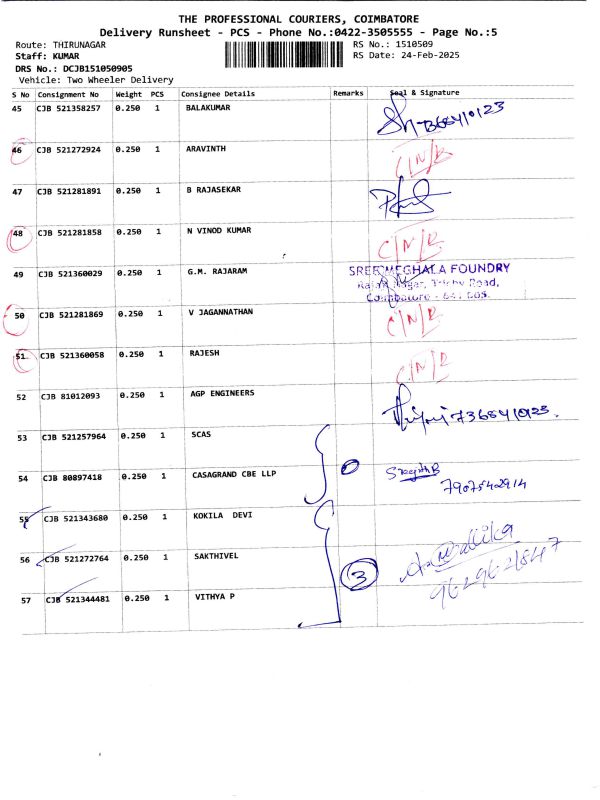 THE PROFESSIONAL COURIERS, COIMBATORE
Delivery Runsheet - PCS - Phone No.:0422-3505555 - Page No.:5
Route: THIRUNAGAR RS No.: 1510509
Staff: KUMAR RS Date: 24-Feb-2025
DRS No.: DCJB151050905
Vehicle: Two Wheeler Delivery
S No Consignment No Weight PCS Consignee Details Remarks Seal & Signature
45 CJB 521358257 0.250 1 BALAKUMAR
46 CJB 521272924 0.250 1 ARAVINTH C/N/R
47 CJB 521281891 0.250 1 B RAJASEKAR
48 CJB 521281858 0.250 1 N VINOD KUMAR C/N/R
49 CJB 521360029 0.250 1 G.M. RAJARAM SREE MEGHALA FOUNDRY
Nagar, Trichy Road,
Coimbatore - 641 005.
50 CJB 521281869 0.250 1 V JAGANNATHAN C/N/R
51 CJB 521360058 0.250 1 RAJESH C/N/R
52 CJB 81012093 0.250 1 AGP ENGINEERS
53 CJB 521257964 0.250 1 SCAS
54 CJB 80897418 0.250 1 CASAGRAND CBE LLP
7907542914
55 CJB 521343680 0.250 1 KOKILA DEVI
56 CJB 521272764 0.250 1 SAKTHIVEL 3
9629621847
57 CJB 521344481 0.250 1 VITHYA P